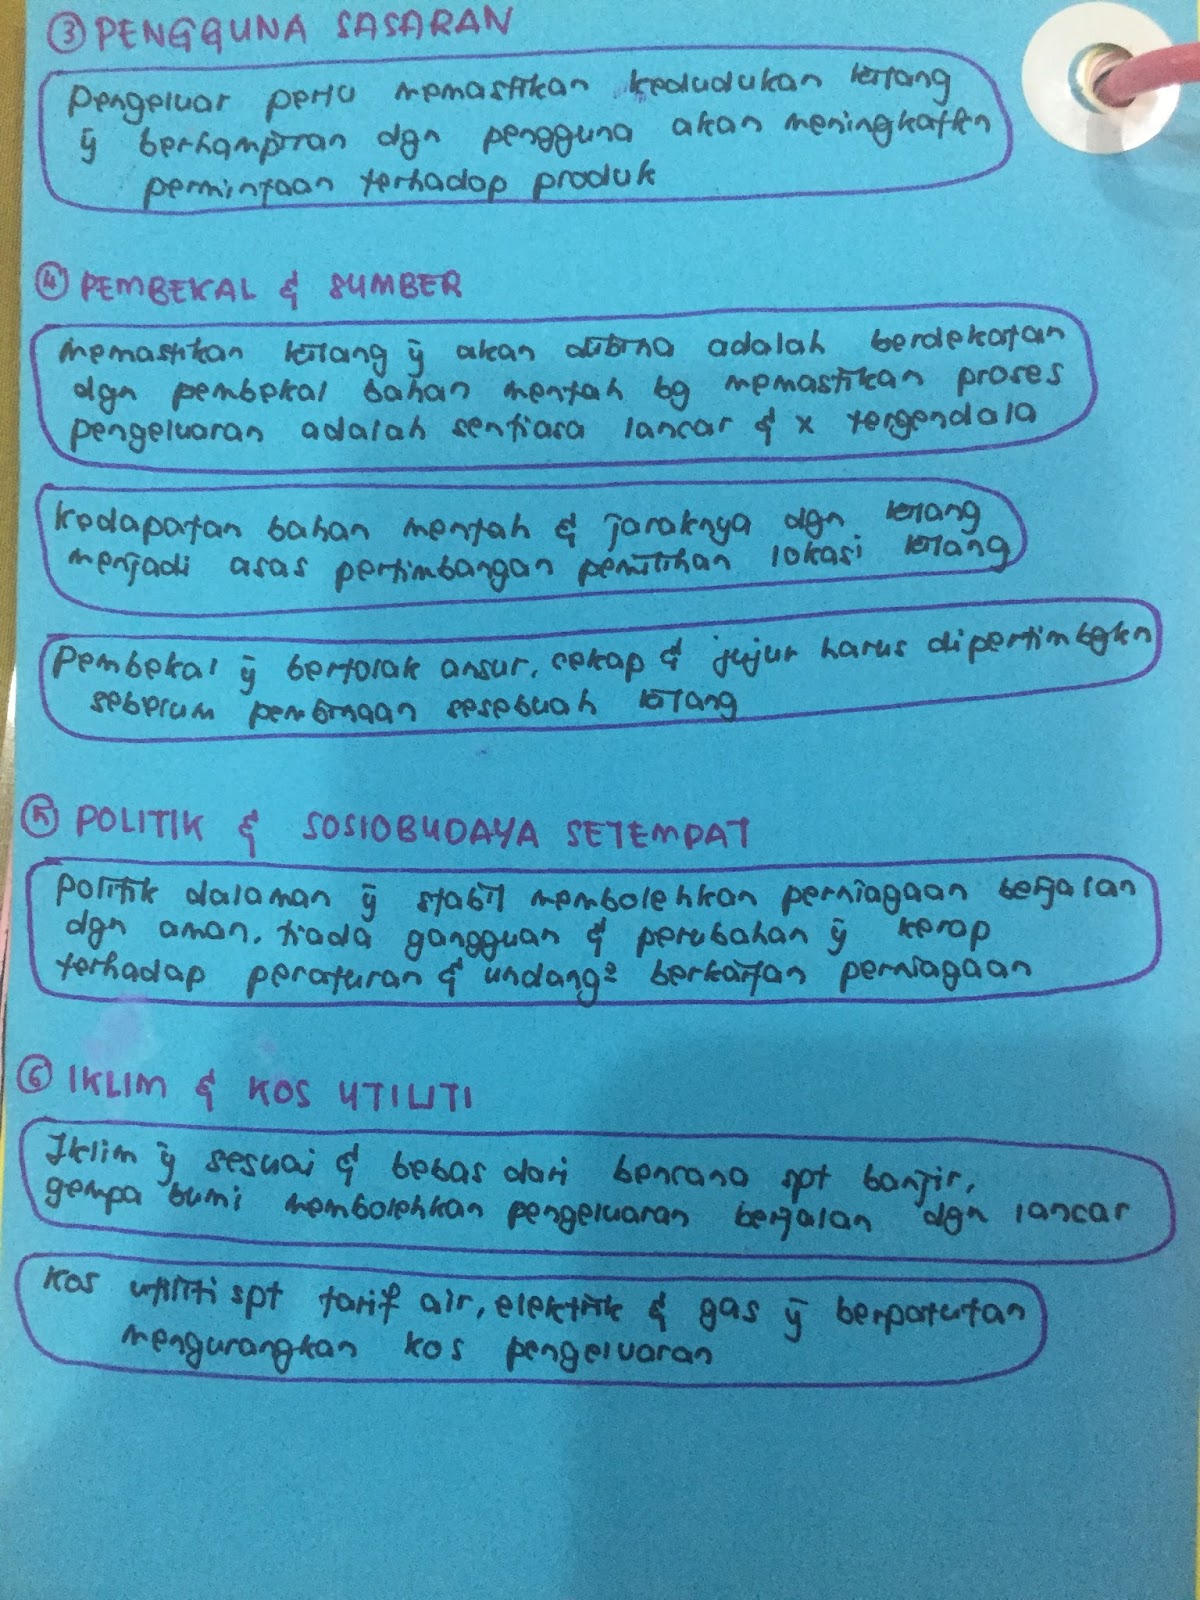 ③ PENGGUNA SASARAN
Pengeluar perlu memastikan kedudukan kilang
ȳ berhampiran dgn pengguna akan meningkatkn
permintaan terhadap produk
④ PEMBEKAL & SUMBER
Memastikan kilang ȳ akan dibina adalah berdekatan
dgn pembekal bahan mentah bg memastikan proses
pengeluaran adalah sentiasa lancar & x tergendala
Kedapatan bahan mentah & jaraknya dgn kilang
menjadi asas pertimbangan pemilihan lokasi kilang
Pembekal ȳ bertolak ansur, cekap & jujur harus dipertimbgkn
sebelum pembinaan sesebuah kilang
⑤ POLITIK & SOSIOBUDAYA SETEMPAT
Politik dalaman ȳ stabil membolehkan perniagaan berjalan
dgn aman, tiada gangguan & perubahan ȳ kerap
terhadap peraturan & undang² berkaitan perniagaan
⑥ IKLIM & KOS UTILITI
Iklim ȳ sesuai & bebas dari bencana spt banjir,
gempa bumi membolehkan pengeluaran berjalan dgn lancar
Kos utiliti spt tarif air, elektrik & gas ȳ berpatutan
mengurangkan kos pengeluaran